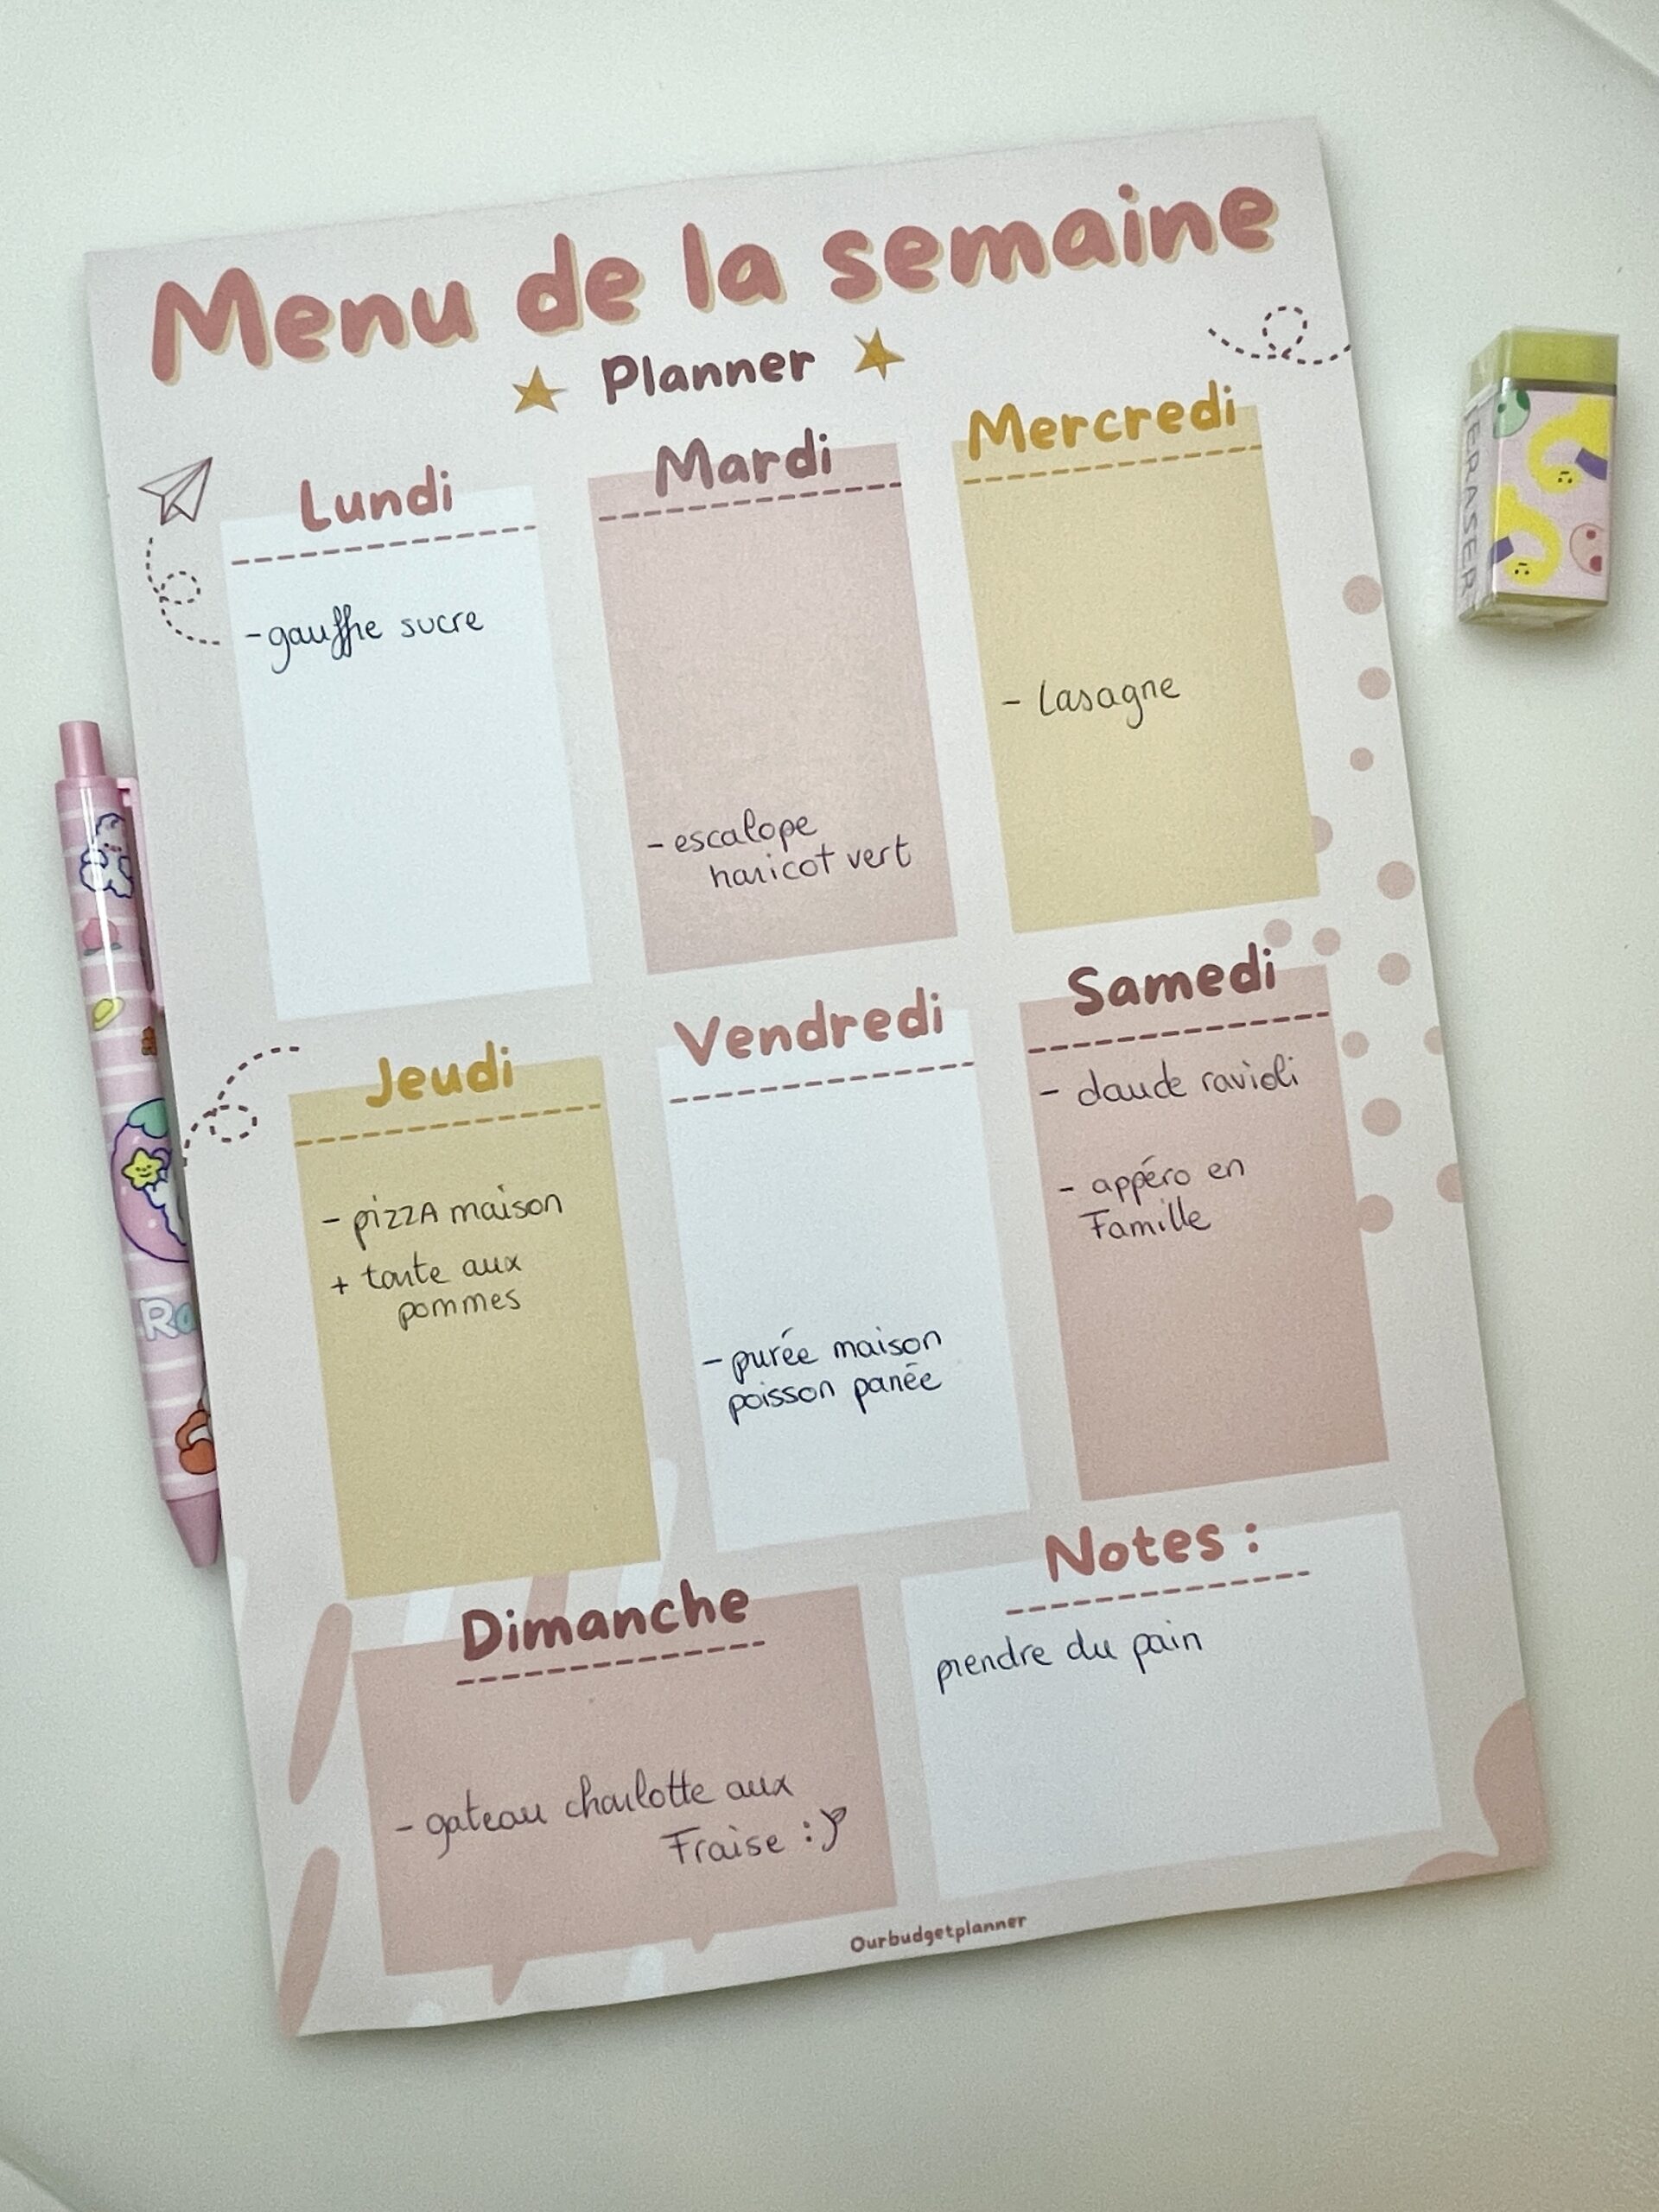 Menu de la semaine
Planner
Lundi
- gauffre sucre
Mardi
- escalope
haricot vert
Mercredi
- Lasagne
Jeudi
- pizzA maison
+ tarte aux
pommes
Vendredi
- purée maison
poisson panée
Samedi
- daude ravioli
- appéro en
Famille
Dimanche
- gateau charlotte aux
Fraise :)
Notes :
prendre du pain
Ourbudgetplanner
ERASER